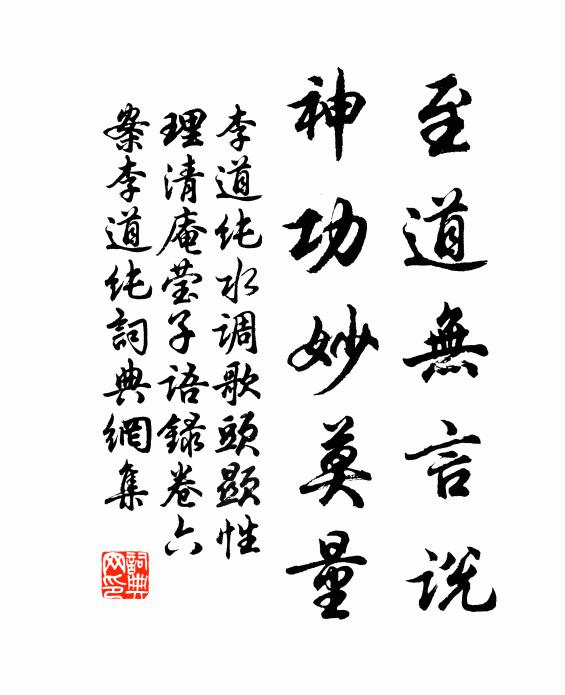 至道無言說
神功妙莫量
李道纯水调歌頭顯性
理清庵莹子語録卷六
案李道纯詞典網集
詞典網印